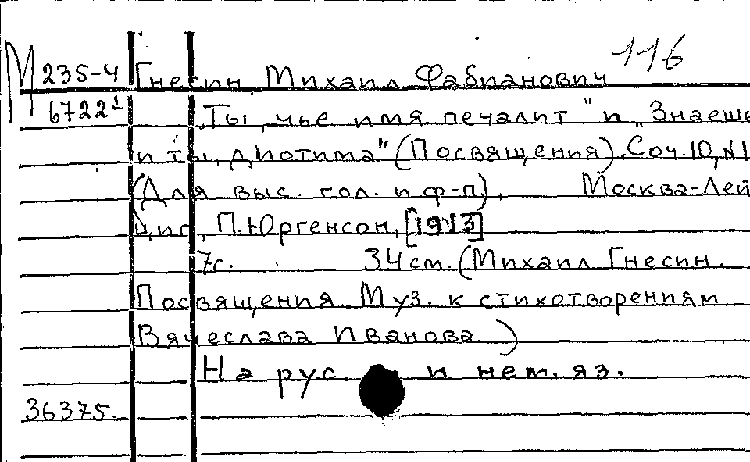 116
М 235-4 Гнесин, Михаил Фабианович
6722² „Ты, чье имя печалит" и „Знаешь
и ты, диотима" (Посвящения). Соч. 10, №1
(Для выс. гол. и ф-п). Москва-Лей
пциг, П. Юргенсон, [1913]
7с. 34 см. (Михаил Гнесин.
Посвящения Муз. к стихотворениям
Вячеслава Иванова)
На рус. и нем. яз.
36375.